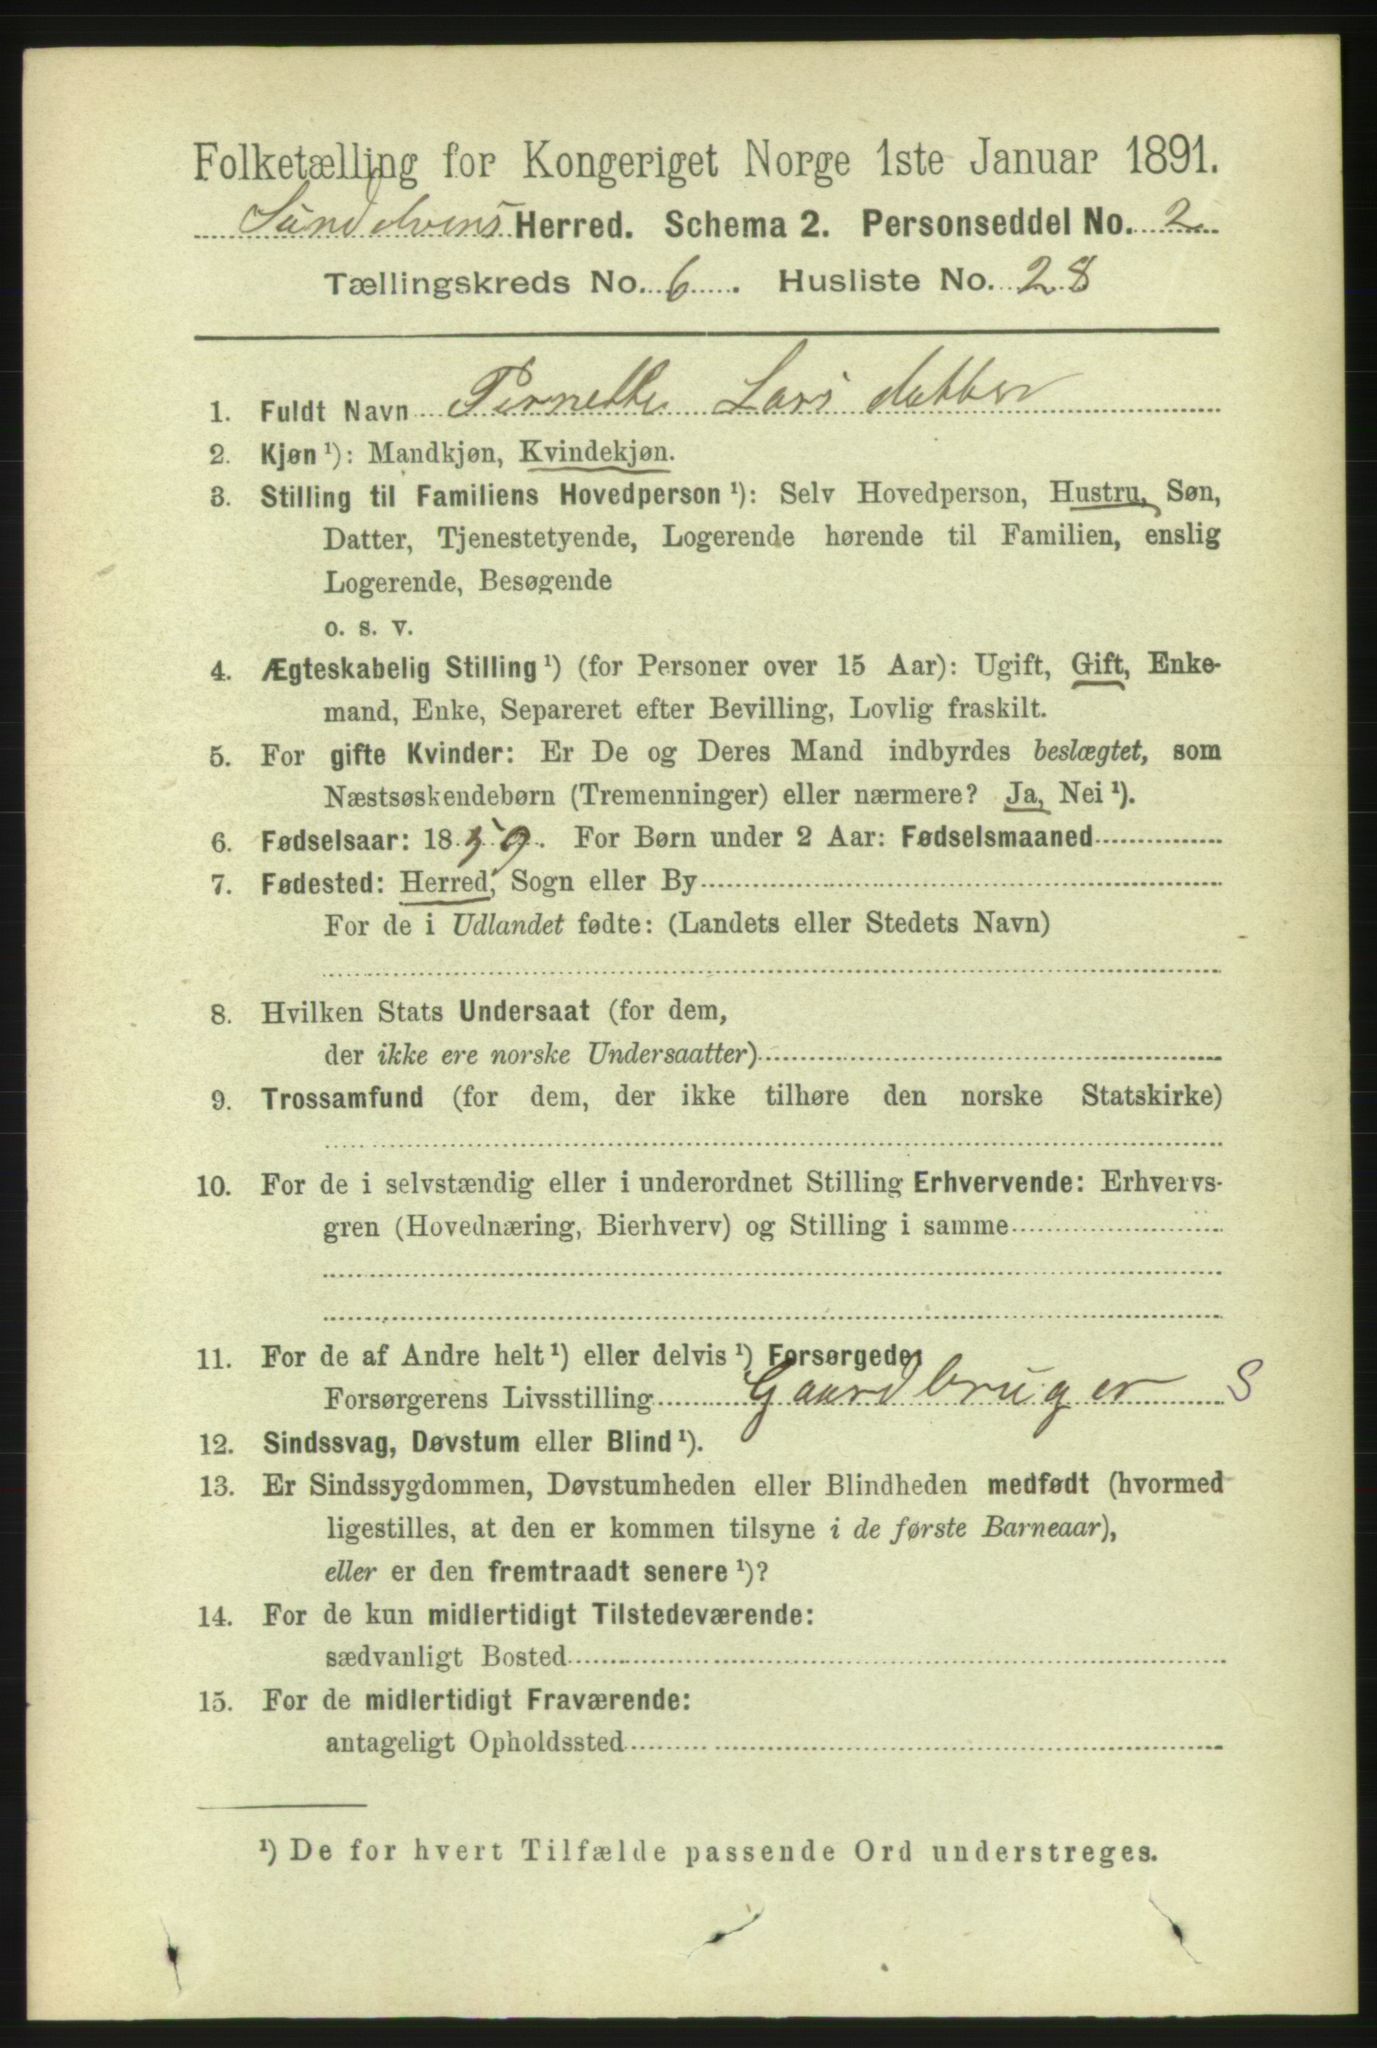 Folketælling for Kongeriget Norge 1ste Januar 1891.
Sundelvens Herred. Schema 2. Personseddel No. 2
Tællingskreds No. 6. Husliste No. 28
1. Fuldt Navn Pernette Lars datter
2. Kjøn ¹): Mandkjøn, Kvindekjøn.
3. Stilling til Familiens Hovedperson ¹): Selv Hovedperson, Hustru, Søn,
Datter, Tjenestetyende, Logerende hørende til Familien, enslig
Logerende, Besøgende
o. s. v.
4. Ægteskabelig Stilling ¹) (for Personer over 15 Aar): Ugift, Gift, Enke-
mand, Enke, Separeret efter Bevilling, Lovlig fraskilt.
5. For gifte Kvinder: Er De og Deres Mand indbyrdes beslægtet, som
Næstsøskendebørn (Tremenninger) eller nærmere? Ja, Nei ¹).
6. Fødselsaar: 1859. For Børn under 2 Aar: Fødselsmaaned
7. Fødested: Herred, Sogn eller By
For de i Udlandet fødte: (Landets eller Stedets Navn)
8. Hvilken Stats Undersaat (for dem,
der ikke ere norske Undersaatter)
9. Trossamfund (for dem, der ikke tilhøre den norske Statskirke)
10. For de i selvstændig eller i underordnet Stilling Erhvervende: Erhvervs-
gren (Hovednæring, Bierhverv) og Stilling i samme
11. For de af Andre helt ¹) eller delvis ¹) Forsørgede:
Forsørgerens Livsstilling Gaardbruger S
12. Sindssvag, Døvstum eller Blind ¹).
13. Er Sindssygdommen, Døvstumheden eller Blindheden medfødt (hvormed
ligestilles, at den er kommen tilsyne i de første Barneaar),
eller er den fremtraadt senere ¹)?
14. For de kun midlertidigt Tilstedeværende:
sædvanligt Bosted
15. For de midlertidigt Fraværende:
antageligt Opholdssted
¹) De for hvert Tilfælde passende Ord understreges.